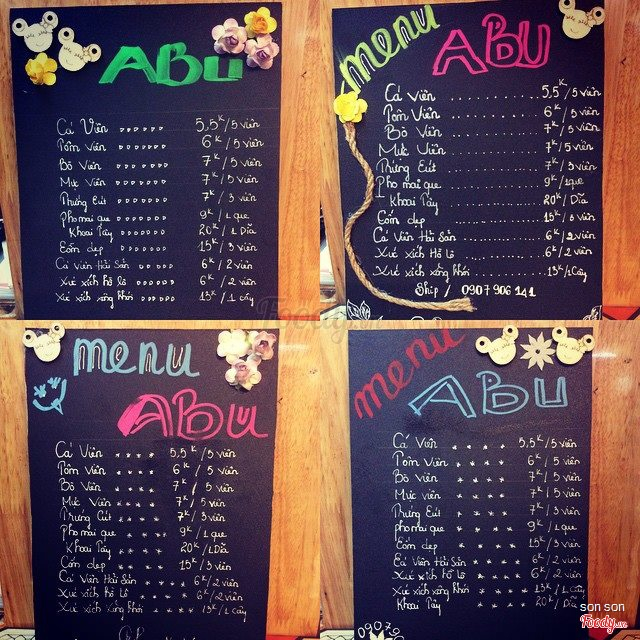 ABU
Cá Viên 5,5K/5 viên
Tôm Viên 6K/5 viên
Bò Viên 7K/5 viên
Mực Viên 7K/5 viên
Trứng Cút 7K/3 viên
Phomai que 9K/1 que
Khoai Tây 20K/1 Dĩa
Cốm dẹp 15K/3 viên
Cá Viên Hải Sản 6K/2 viên
Xúc xích hồ lô 6K/2 viên
Xúc xích xông khói 13K/1 cây
menu
ABU
Cá Viên 5,5K/5 viên
Tôm Viên 6K/5 viên
Bò Viên 7K/5 viên
Mực Viên 7K/5 viên
Trứng Cút 7K/3 viên
Pho mai que 9K/1 que
Khoai Tây 20K/Dĩa
Cốm dẹp 15K/3 viên
Cá Viên Hải Sản 6K/2 viên
Xúc xích Hồ lô 6K/2 viên
Xúc xích xông khói 13K/1 cây
Ship / 0907 906 141
menu
ABU
Cá Viên 5,5K/5 viên
Tôm Viên 6K/5 viên
Bò Viên 7K/5 viên
Mực Viên 7K/5 viên
Trứng Cút 7K/3 viên
Pho mai que 9K/1 que
Khoai Tây 20K/1 Dĩa
Cốm dẹp 15K/3 viên
Cá Viên Hải Sản 6K/2 viên
Xúc xích hồ lô 6K/2 viên
Xúc xích xông khói 13K/1 cây
menu
ABU
Cá Viên 5,5K/5 viên
Tôm Viên 6K/5 viên
Bò Viên 7K/5 viên
Mực viên 7K/5 viên
Trứng Cút 7K/3 viên
pho mai que 9K/1 que
Cốm dẹp 15K/3 viên
Cá Viên Hải Sản 6K/2 viên
Xúc xích hồ lô 6K/2 viên
Xúc xích xông khói 13K/1 cây
Khoai Tây 20K/Dĩa
son son
Foody.vn